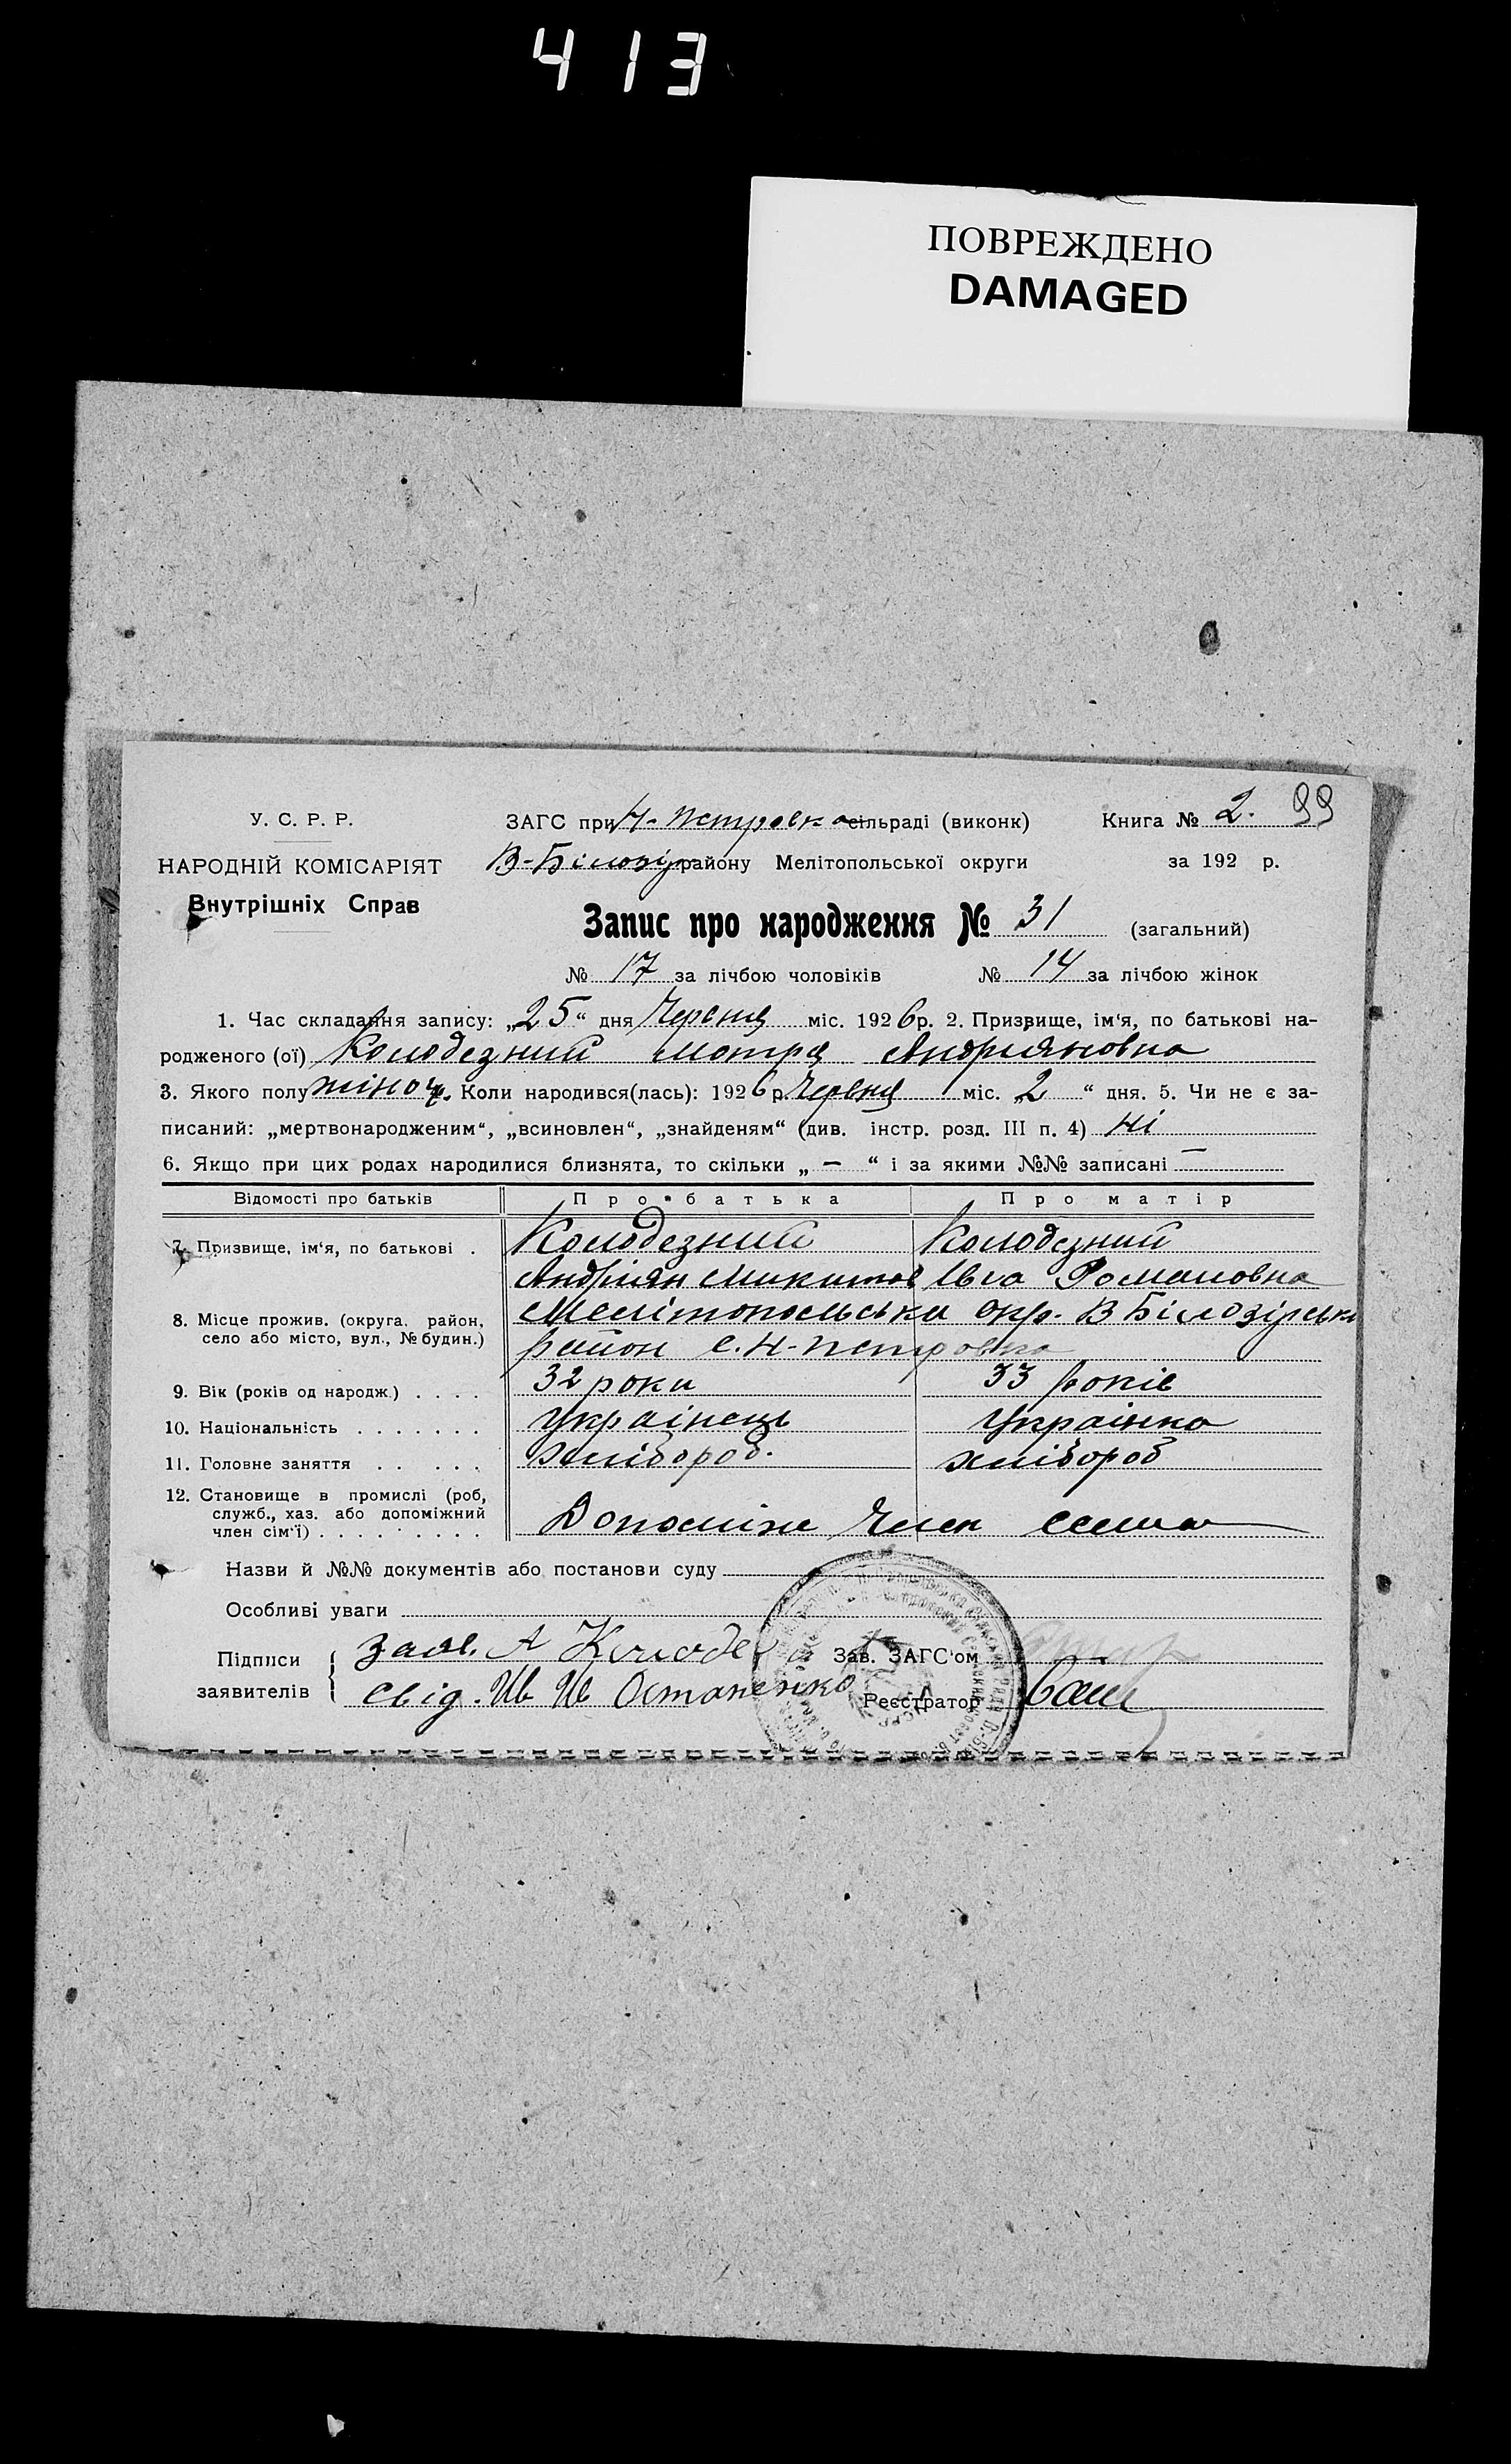 413
ПОВРЕЖДЕНО
DAMAGED
У. С. Р. Р.
НАРОДНІЙ КОМІСАРІЯТ
Внутрішніх Справ
ЗАГС при Н-Петровк сільраді (виконк)
В-Білозір району Мелітопольської округи
Книга № 2. 99
за 192 р.
Запис про народження № 31 (загальний)
№ 17 за лічбою чоловіків № 14 за лічбою жінок
1. Час складання запису: „25“ дня Червня міс. 1926 р. 2. Призвище, ім‘я, по батькові на-
родженого (ої) Колодезний Мотря Андріяновна
3. Якого полу жіноч. Коли народився(лась): 1926 р. Червня міс. „2“ дня. 5. Чи не є за-
писаний: „мертвонародженим“, „всиновлен“, „знайденям“ (див. інстр. розд. III п. 4) Ні
6. Якщо при цих родах народилися близнята, то скільки „ — “ і за якими №№ записані —
Відомості про батьків Про батька Про матір
7. Призвище, ім‘я, по батькові . Колодезний Колодезний
Андріян Микитов Ївга Романовна
8. Місце прожив. (округа, район,
село або місто, вул., № будин.)
Мелітопольська окр. В Білозірськ
район с. Н-Петровка
9. Вік (років од народж.) . . . . 32 роки 33 років
10. Національність . . . . . . . Українець Українка
11. Головне заняття . . . . . . хлібороб. хлібороб
12. Становище в промислі (роб,
служб., хаз. або допоміжний
член сім‘ї) . . . . . . . . . Допоміжн Член
Назви й №№ документів або постанови суду
Особливі уваги
Підписи
заявителів
Заяв. А Колоде
Свід. Ив Ив Остапенко
Зав. ЗАГС‘ом
Реєстратор